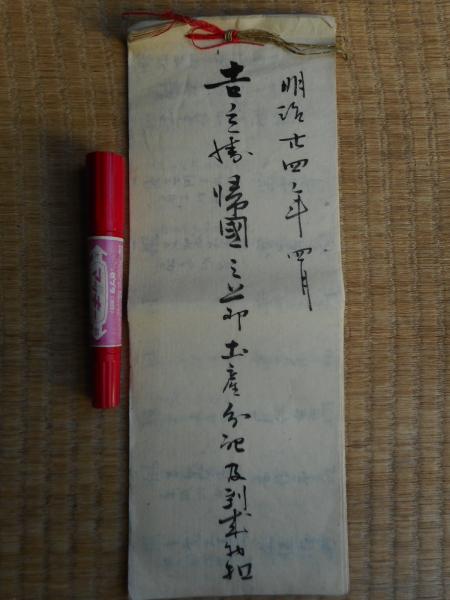 明治廿四年四月
吉之 帰國之節土産分配及到来物扣